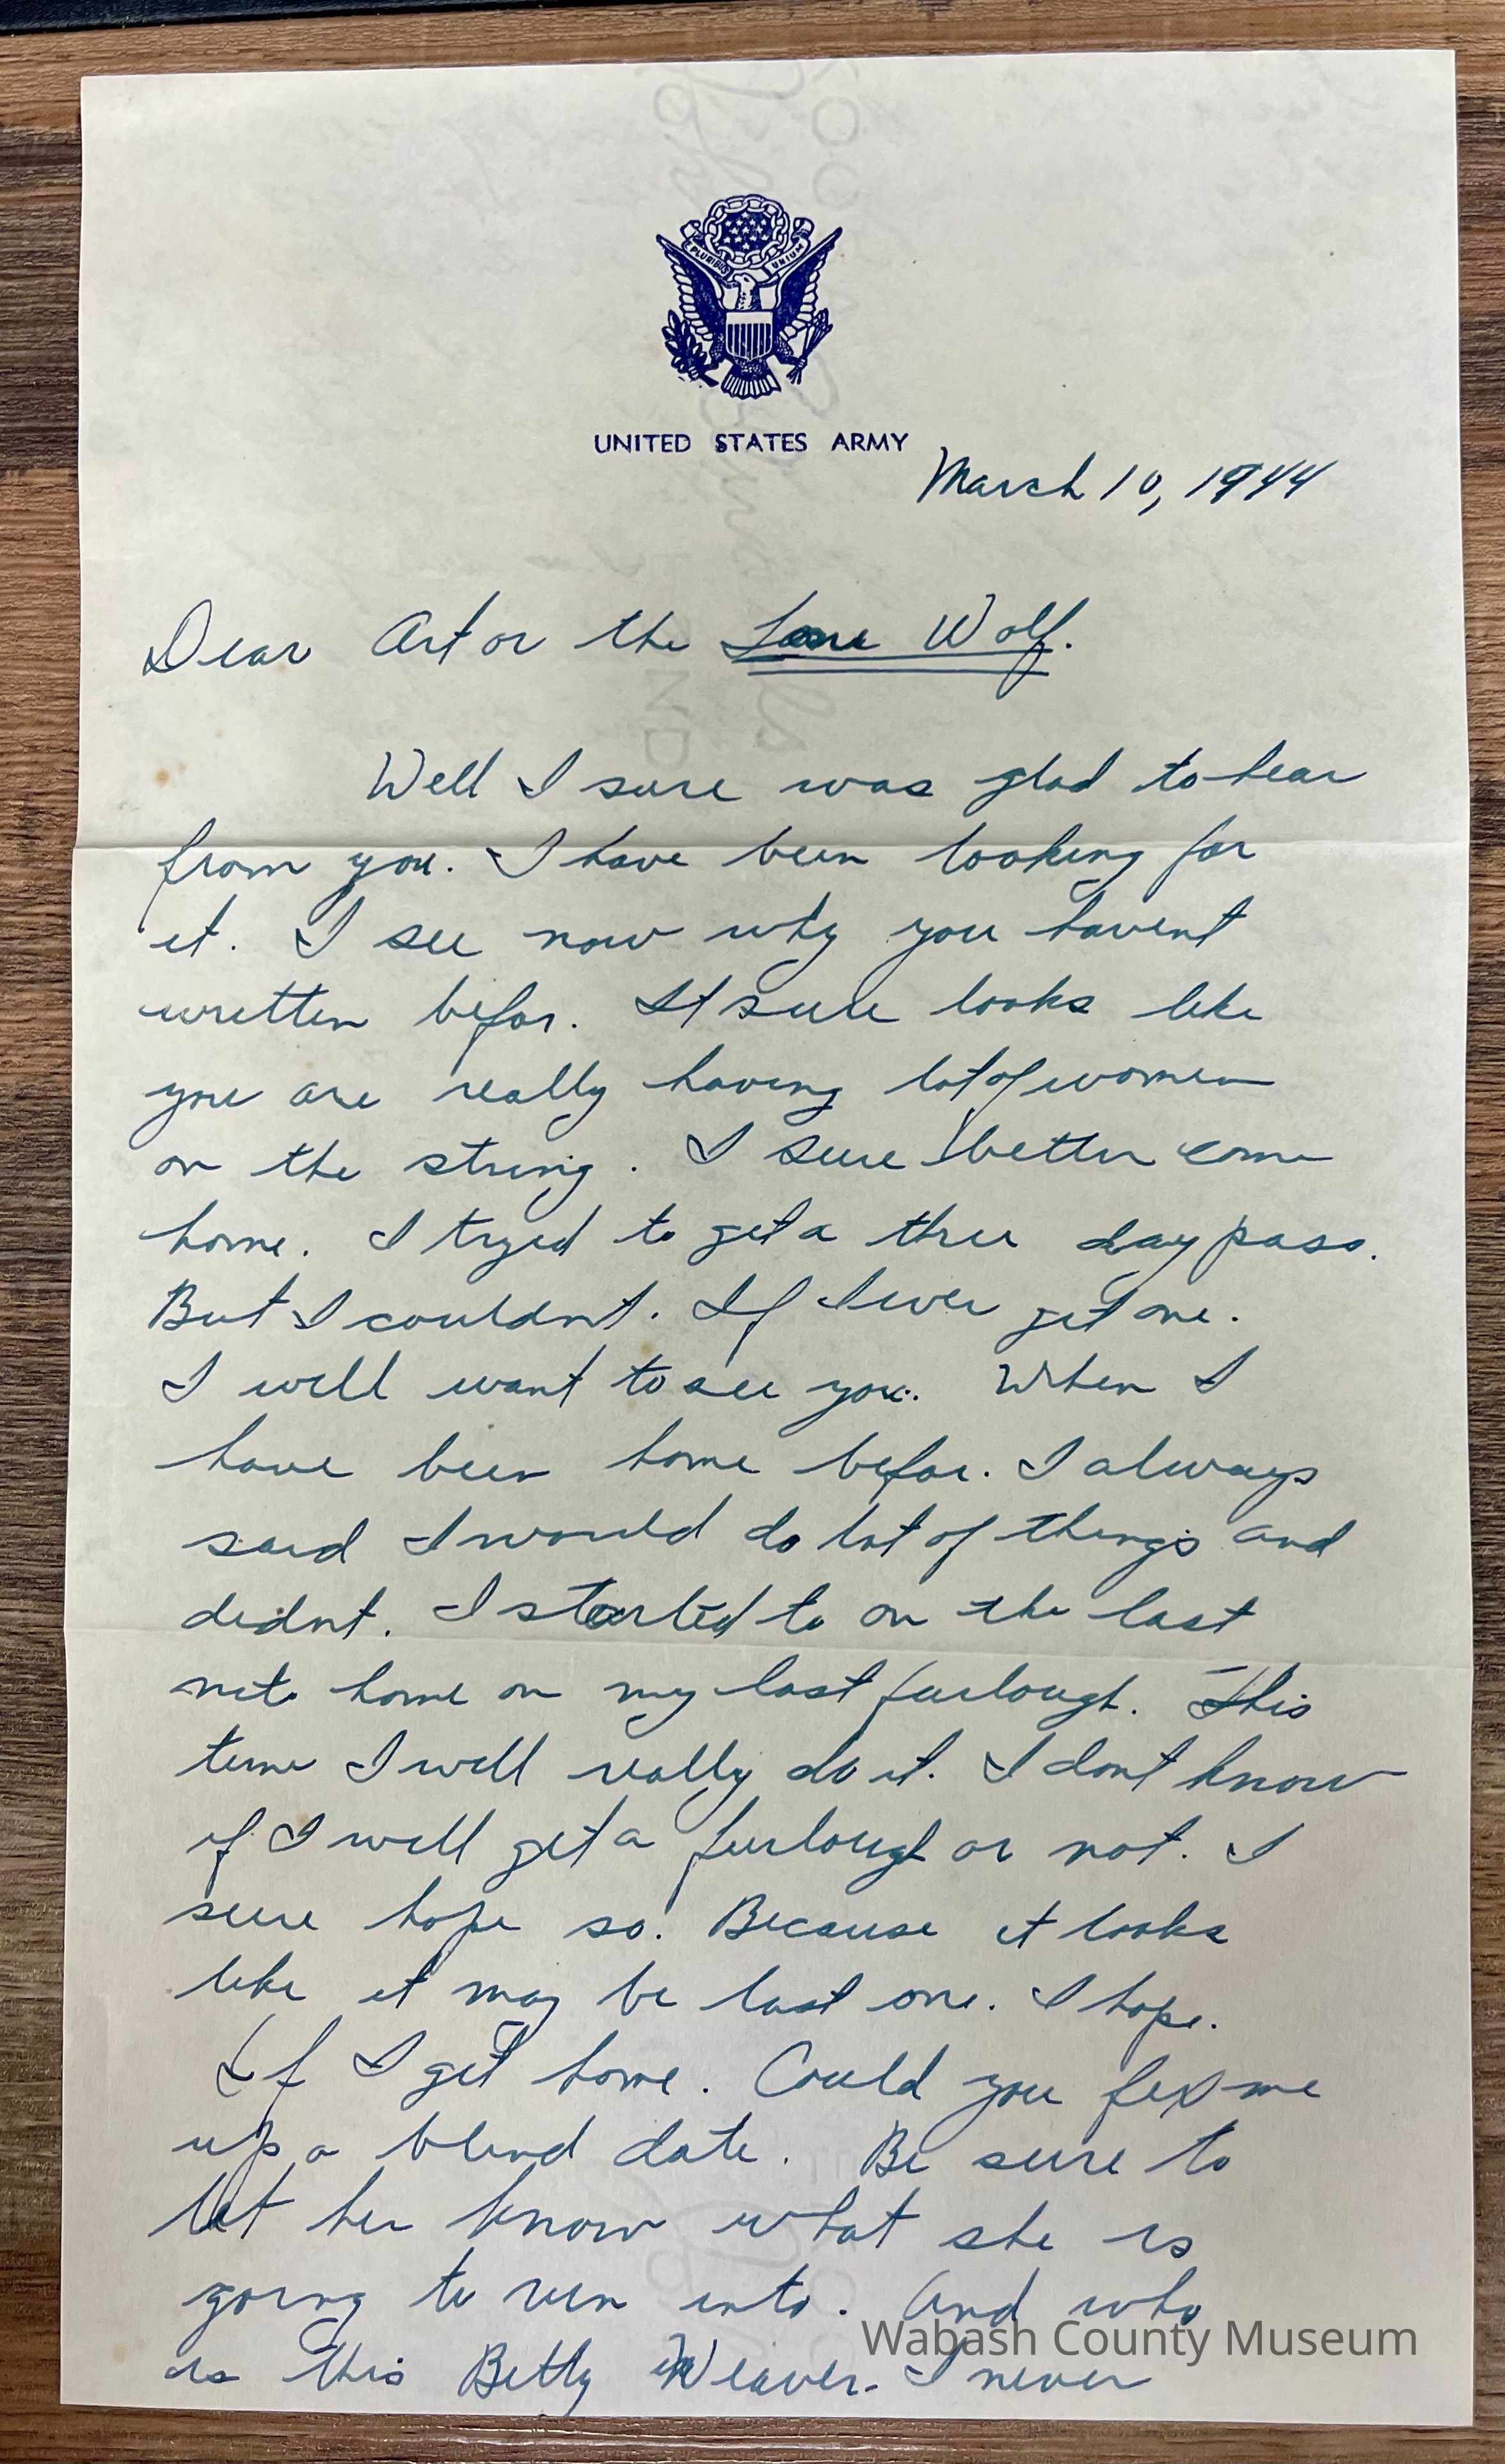 E PLURIBUS UNUM
UNITED STATES ARMY
March 10, 1944
Dear Art or the Lone Wolf.
Well I sure was glad to hear
from you. I have been looking for
it. I see now why you havent
written befor. It sure looks like
you are really having lot of women
on the string. I sure better come
home. I tryed to get a three day pass.
But I couldnt. If I ever get one.
I will want to see you. When I
have been home befor. I always
said I would do lot of things and
didnt. I started to on the last
nite home on my last furlough. This
time I will really do it. I dont know
if I will get a furlough or not. I
sure hope so. Because it looks
like it may be last one. I hope.
If I get home. Could you fix me
up a blind date. Be sure to
let her know what she is
going to run into. And who
is this Betty Weaver. I never
Wabash County Museum